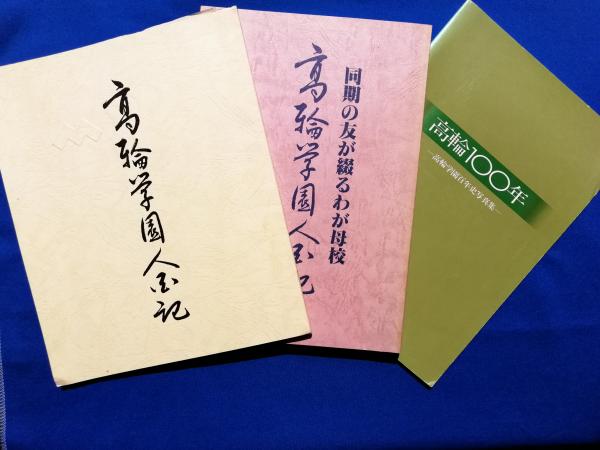 高輪学園人国記
同期の友が綴るわが母校
高輪学園人国記
高輪100年
—高輪学園百年史写真集—